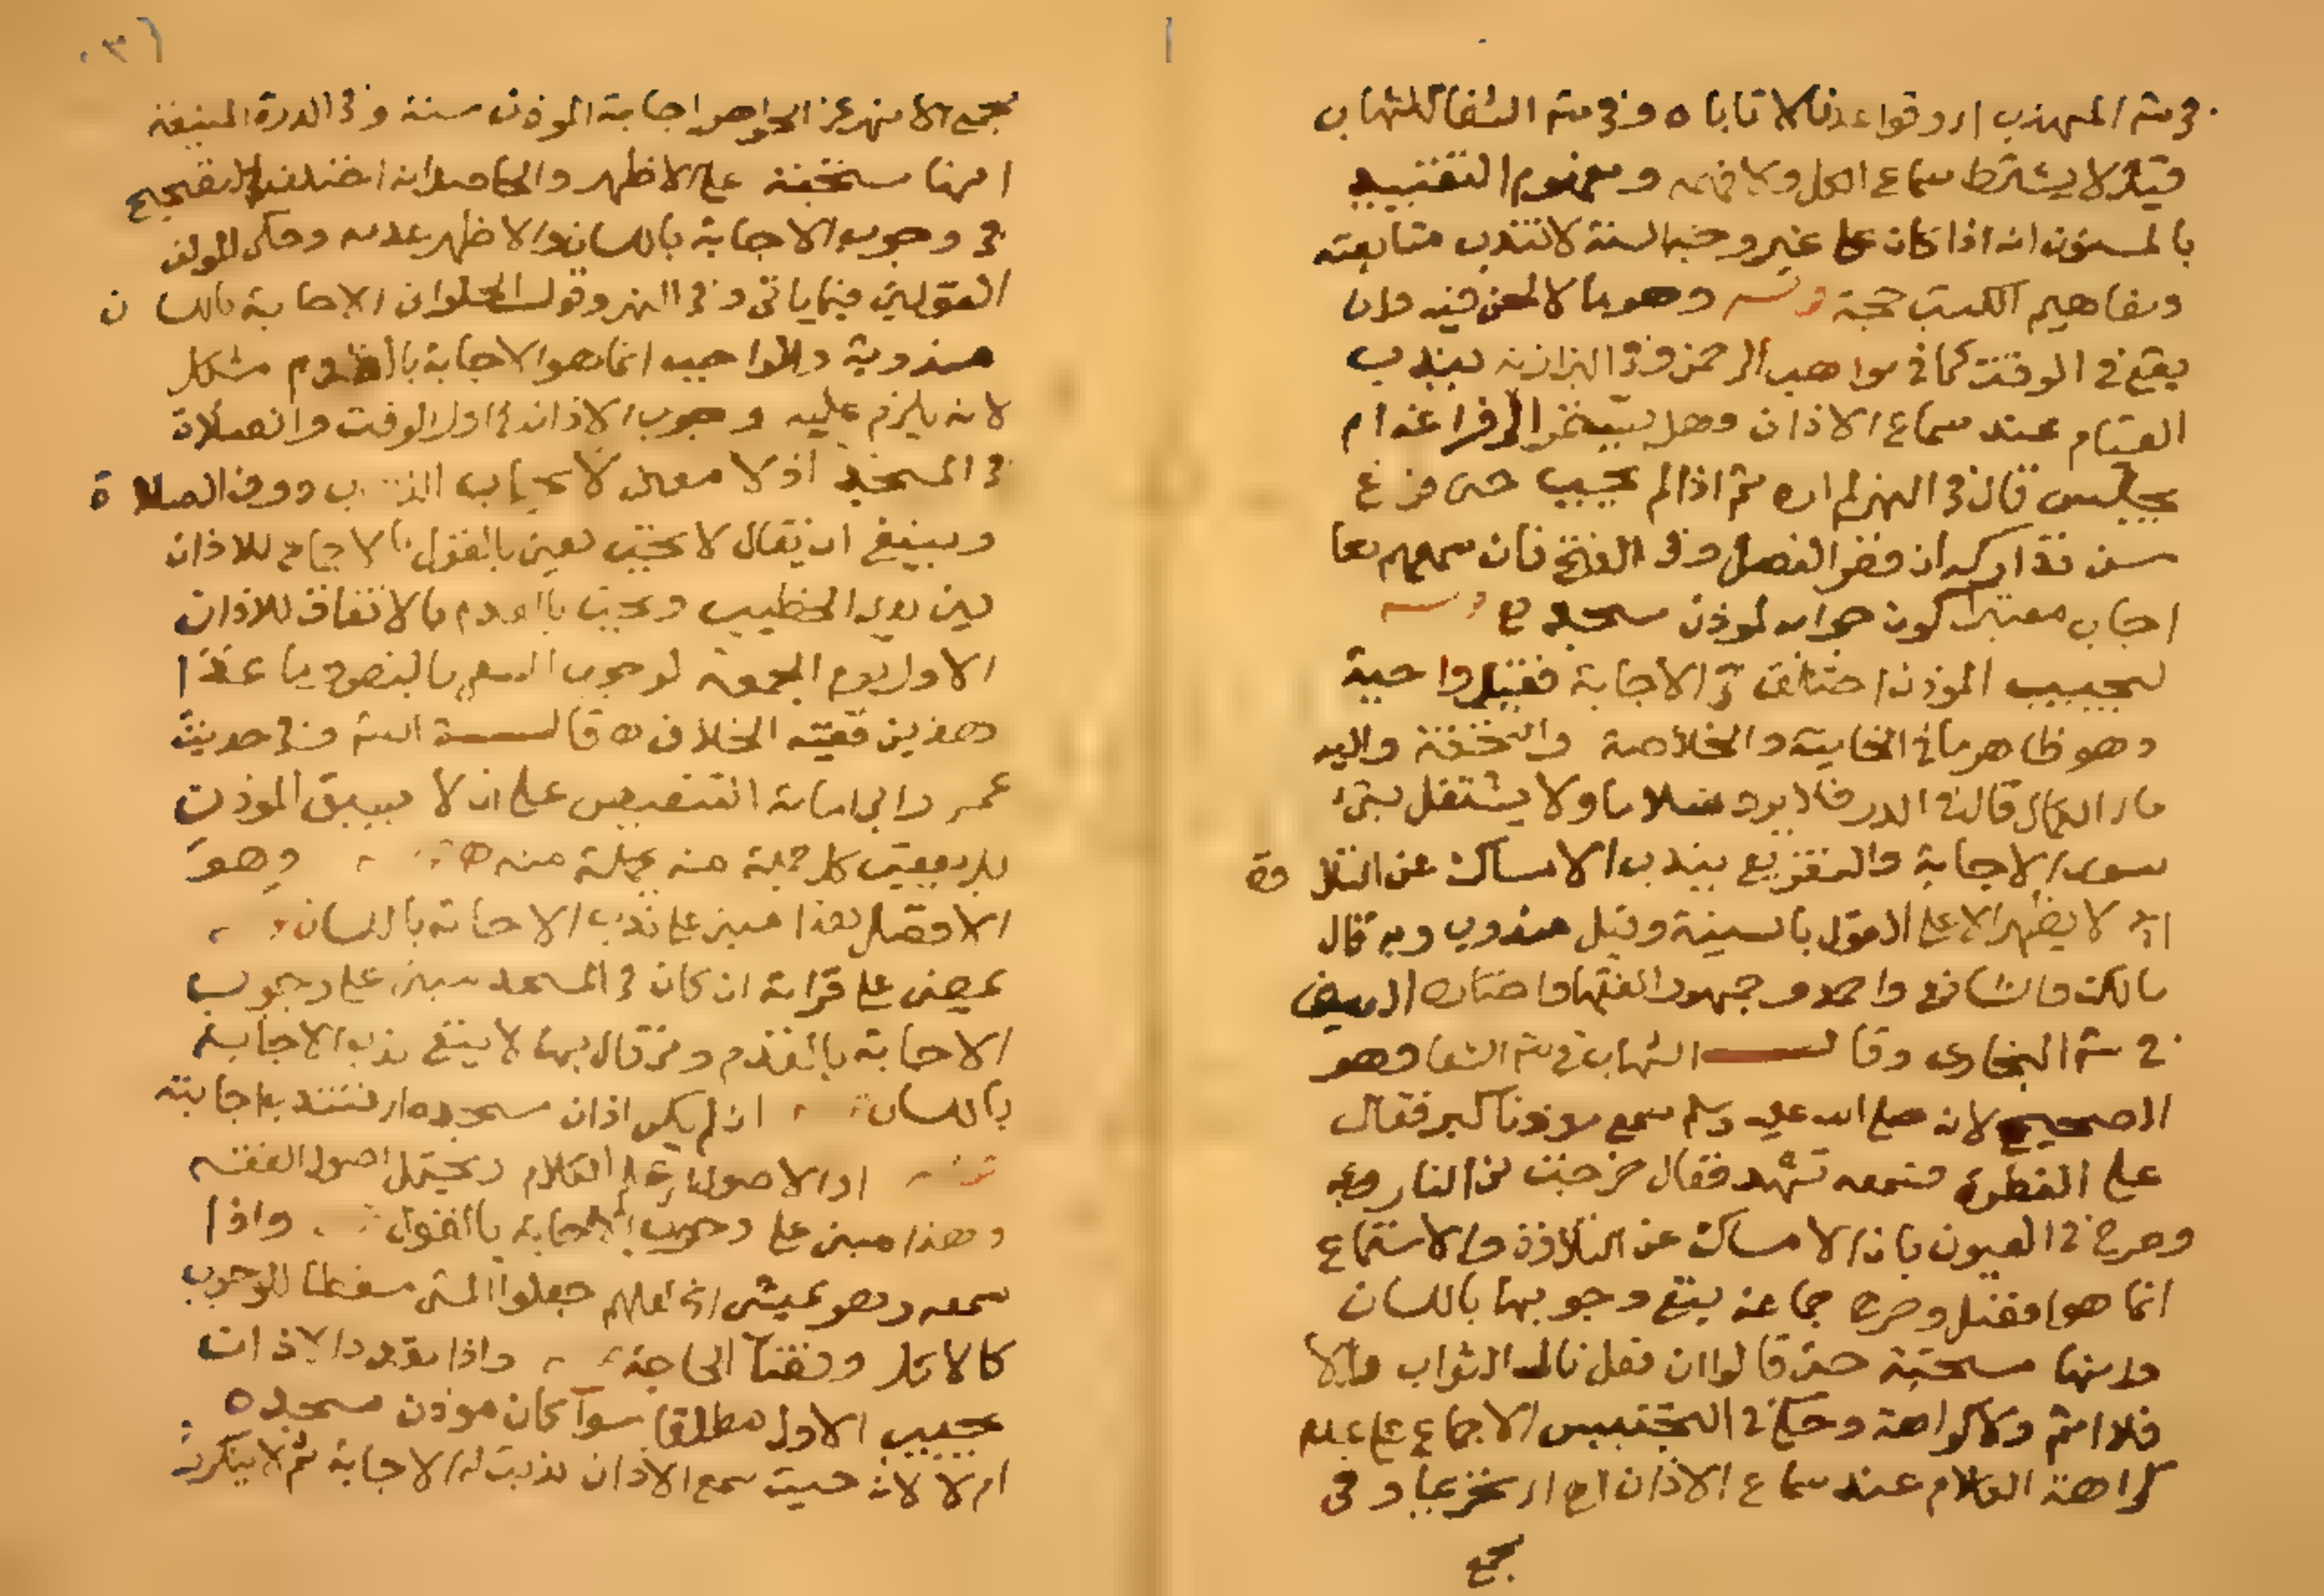 في شرح المهذب اه وقواعدنا لا تاباه وفي شرح الشفا للشهاب
قيل لا يشترط سماع الكل ولا فهمه ومفهوم التقييد
بالمسنون انه اذا كان على غير وجه السنة لا تندب متابعته
ومفاهيم الكتب حجة وهو ما لا لحن فيه وان
يقع في الوقت كما في مواهب الرحمن وفي البزازية يندب
القيام عند سماع الاذان وهل يستمر الى فراغه ام
يجلس قال في النهر لم اره ثم اذا لم يجيب حتى فرغ
سن تداركه ان قصر الفصل وفي الفتح فان سمعهم معا
اجاب معتبرا كون جوابه لموذن مسجده
ليجيب الموذن اختلف في الاجابة فقيل واجبة
وهو ظاهر ما في الخانية والخلاصة والتحفة واليه
مال الكمال قال في الدر فلا يرد سلاما ولا يشتغل بشيء
سوى الاجابة والتفريع بندب الامساك عن التلاوة
لا يظهر الا على القول بالسنية وقيل مندوب وبه قال
مالك والشافعي واحمد وجمهور الفقها واختاره العيني
في شرح البخاري وقال الشهاب في شرح الشفا وهو
الصحيح لانه صلى الله عليه وسلم سمع موذنا كبر فقال
على الفطرة فسمعه تشهد فقال خرجت من النار
وصرح في العيون بان الامساك عن التلاوة والاستماع
انما هو افضل وصرح جماعة بنفي وجوبها باللسان
وانها مستحبة حتى قالوا ان فعل نال الثواب والا
فلا اثم ولا كراهة وحكي في التجنيس الاجماع على عدم
كراهة الكلام عند سماع الاذان اه اي تحريما وفي
مجمع
مجمع الانهر عن الجواهر اجابة الموذن سنة وفي الدرة المنيفة
انها مستحبة على الاظهر والحاصل انه اختلف التصحيح
في وجوب الاجابة باللسان والاظهر عدمه وحكى المولف
القولين فيما ياتي وفي النهر وقول الحلواني الاجابة باللسان
مندوبة والواجب انما هو الاجابة بالقدم مشكل
لانه يلزم عليه وجوب الاذان في اول الوقت والصلاة
في المسجد اذ لا معنى لايجاب الذهاب دون الصلاة
وينبغي ان يقال لا تجب يعني بالقول بالاجماع للاذان
بين يدي الخطيب وتجب بالقدم بالاتفاق للاذان
الاول يوم الجمعة لوجوب السعي بالنص وما عدا
هذين ففيه الخلاف اه قال وفي حديث
عمر وابي امامة التنصيص على ان لا يسبق الموذن
بل يعقب كل جملة منه بجملة منه وهو
الافضل هذا مبني على ندب الاجابة باللسان
يمضي على قراته ان كان في المسجد مبني على وجوب
الاجابة بالقدم ومن قال بها لا ينفي ندب الاجابة
باللسان ان لم يكن اذان مسجده اي فتندب اجابته
او الاصول اي علم الكلام ويحتمل اصول الفقه
وهذا مبني على وجوب الاجابة بالقول واذا
سمعه وهو يمشي جعلوا المشي مسقطا للوجوب
كالاكل وقضا الحاجة واذا تعدد الاذان
يجيب الاول مطلقا سوا كان موذن مسجده
ام لا لانه حيث سمع الاذان ندبت له الاجابة ثم لا يتكرر